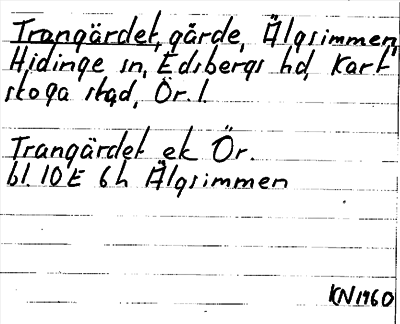 Trangärdet, gärde, Älgsimmen,
Hidinge sn, Edsbergs hd, Karl
skoga stad, Ör. l.
Trangärdet ek Ör.
bl. 10 E 6 h Älgsimmen
KN 1960